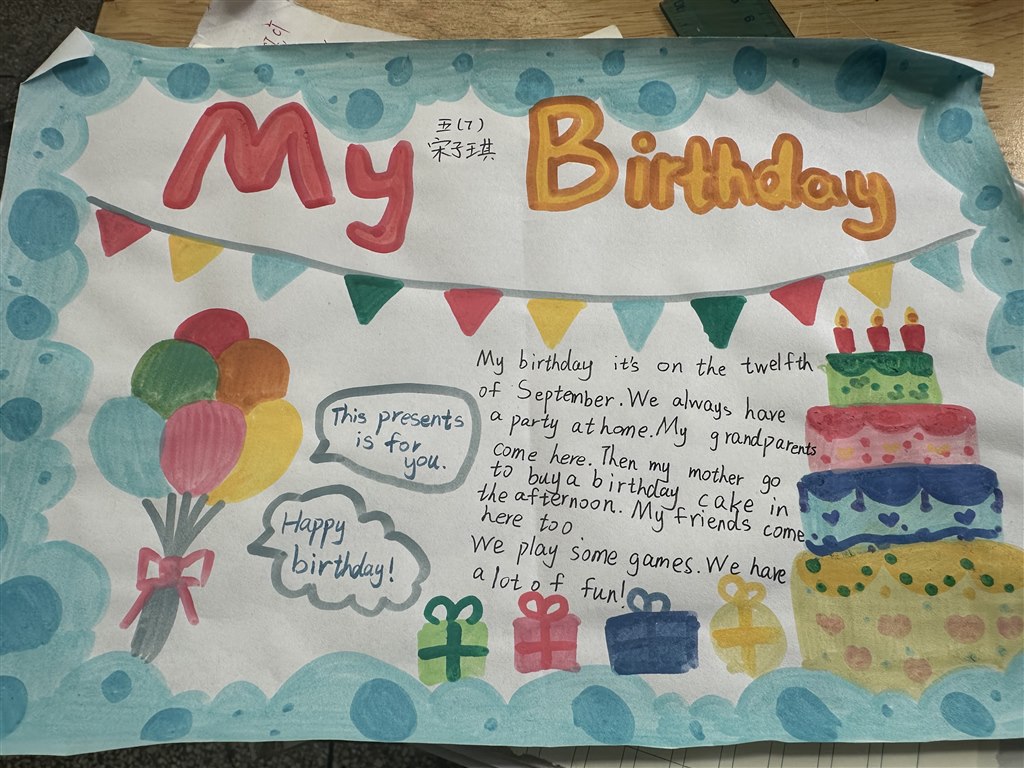 My Birthday
五(7)
宋子琪
My birthday it's on the twelfth
of September. We always have
a party at home. My grandparents
come here. Then my mother go
to buy a birthday cake in
the afternoon. My friends come
here too.
We play some games. We have
a lot of fun!
This presents
is for
you.
Happy
birthday!